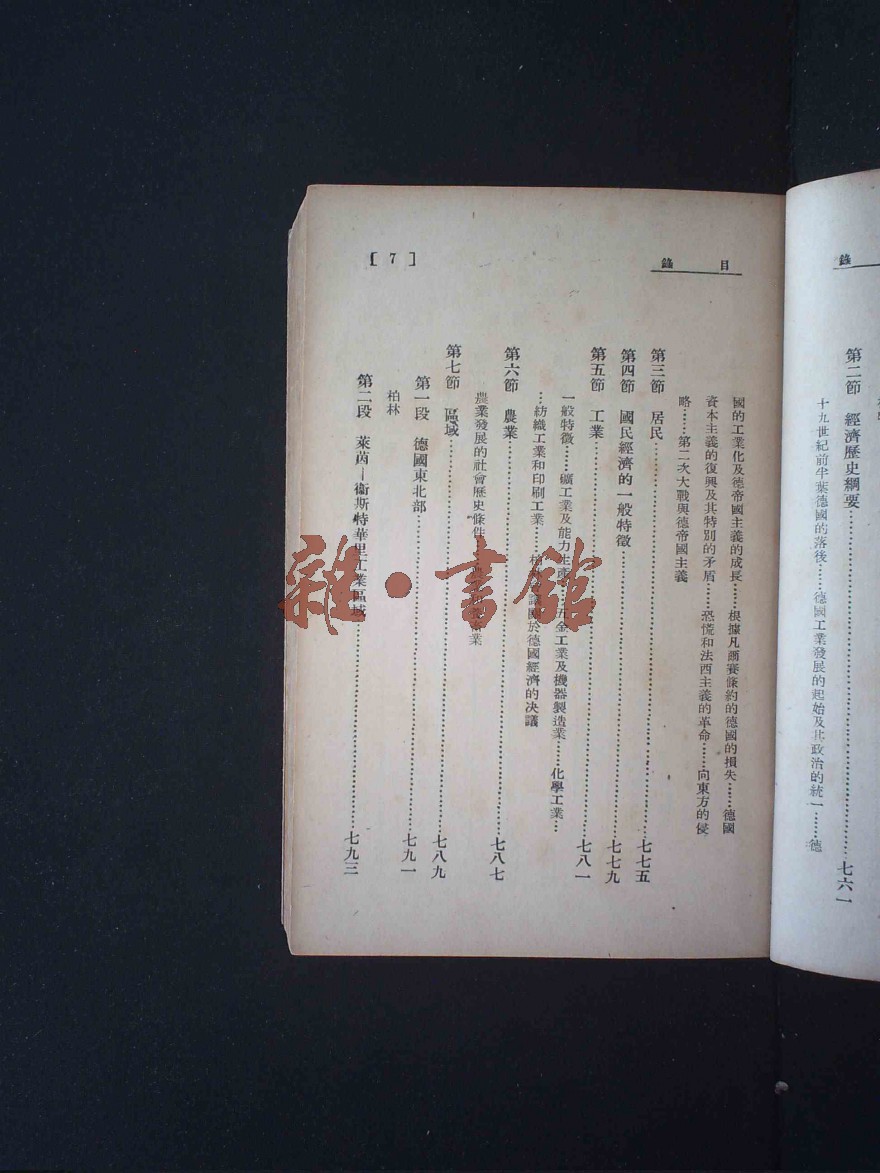 錄
第二節　經濟歷史綱要……七六一
十九世紀前半葉德國的落後……德國工業發展的起始及其政治的統一……德
目錄
國的工業化及德帝國主義的成長……根據凡爾賽條約的德國的損失……德國
資本主義的復興及其特別的矛盾……恐慌和法西主義的革命……向東方的侵
略……第二次大戰與德帝國主義
第三節　居民……七七五
第四節　國民經濟的一般特徵……七七九
第五節　工業……七八一
一般特徵……礦工業及能力生產……五金工業及機器製造業……化學工業…
…紡織工業和印刷工業……會議關於德國經濟的決議
第六節　農業……七八七
農業發展的社會歷史條件……業
第七節　區域……七八九
第一段　德國東北部……七九一
柏林
第二段　萊茵—衞斯特華里工業區域……七九三
[7]
雜·書館